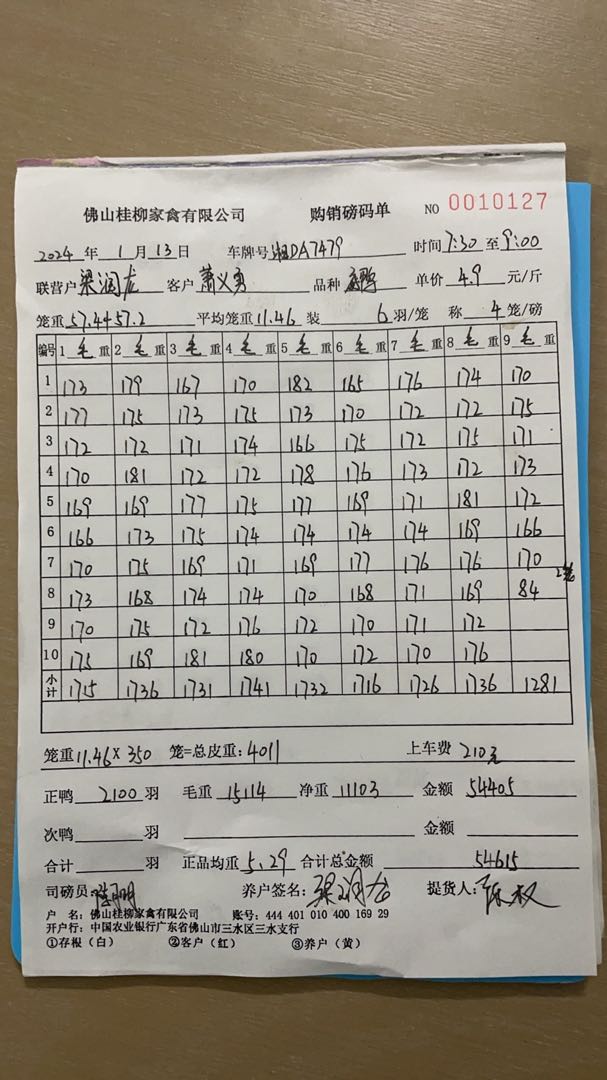 佛山桂柳家禽有限公司 购销磅码单 NO 0010127
2024 年 1 月 13 日 车牌号 湘DA7479 时间 7:30 至 9:00
联营户 梁润 客户 萧义勇 品种 单价 4.9 元/斤
笼重 57.4+57.2 平均笼重 11.46 装 6 羽/笼 称 4 笼/磅
编号 1 毛 重 2 毛 重 3 毛 重 4 毛 重 5 毛 重 6 毛 重 7 毛 重 8 毛 重 9 毛 重
1 173 179 167 170 182 165 176 174 170
2 177 175 173 175 173 170 172 172 175
3 172 172 171 174 166 175 172 175 171
4 170 181 172 172 178 176 173 172 173
5 169 169 177 175 177 169 171 181 172
6 166 173 175 174 174 174 174 169 166
7 170 175 169 171 169 177 176 176 170
8 173 168 174 174 170 168 171 169 84 2笼
9 170 175 172 176 172 170 171 172
10 175 169 181 180 170 172 170 176
小计 1715 1736 1731 1741 1732 1716 1726 1736 1281
笼重 11.46 × 350 笼=总皮重: 4011 上车费 210元
正鸭 2100 羽 毛重 15114 净重 11103 金额 54405
次鸭 羽 金额
合计 羽 正品均重 5.29 合计总金额 54615
司磅员: 养户签名: 梁润 提货人: 权
户 名: 佛山桂柳家禽有限公司 账号: 444 401 010 400 169 29
开户行: 中国农业银行广东省佛山市三水区三水支行
①存根（白） ②客户（红） ③养户（黄）